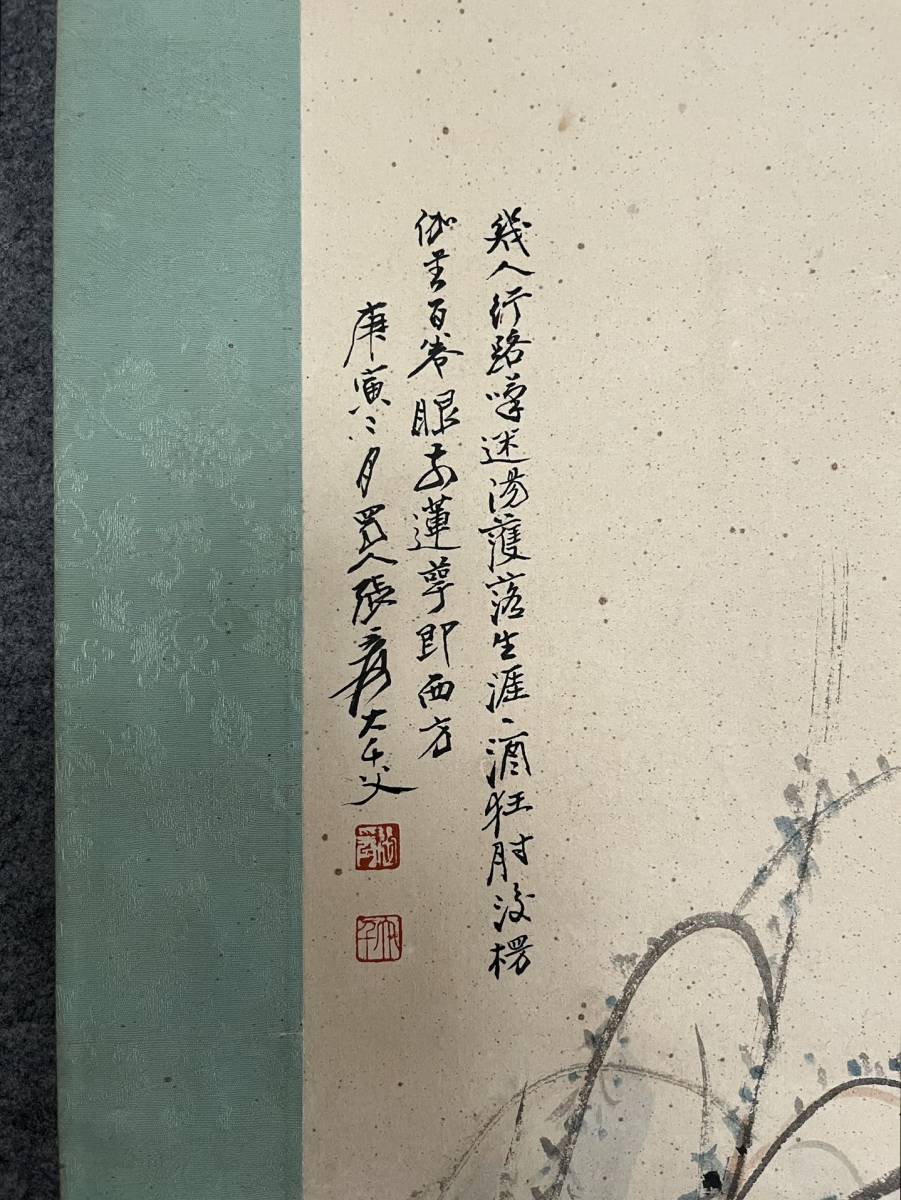 幾人行路嘆迷湯濩落生涯、酒狂肘後楞
伽書百卷眼前蓮萼即西方
庚寅二月蜀人張爰大千父
張爰
大千